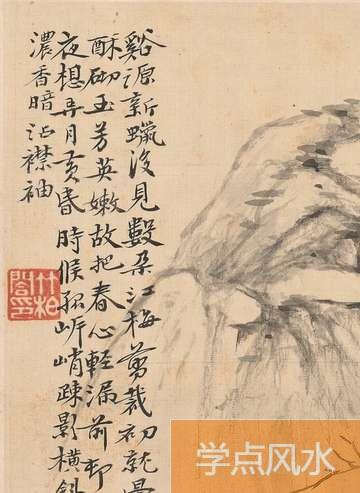 谿源新蠟後見數朶江梅剪裁初就暈
酥砌玉芳英嫩故把春心輕漏前邨
夜想弄月黃昏時候孤岸峭疎影橫斜
濃香暗沾襟袖
竹柏
学点风水